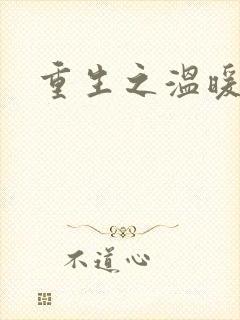 重生之温暖
不道心